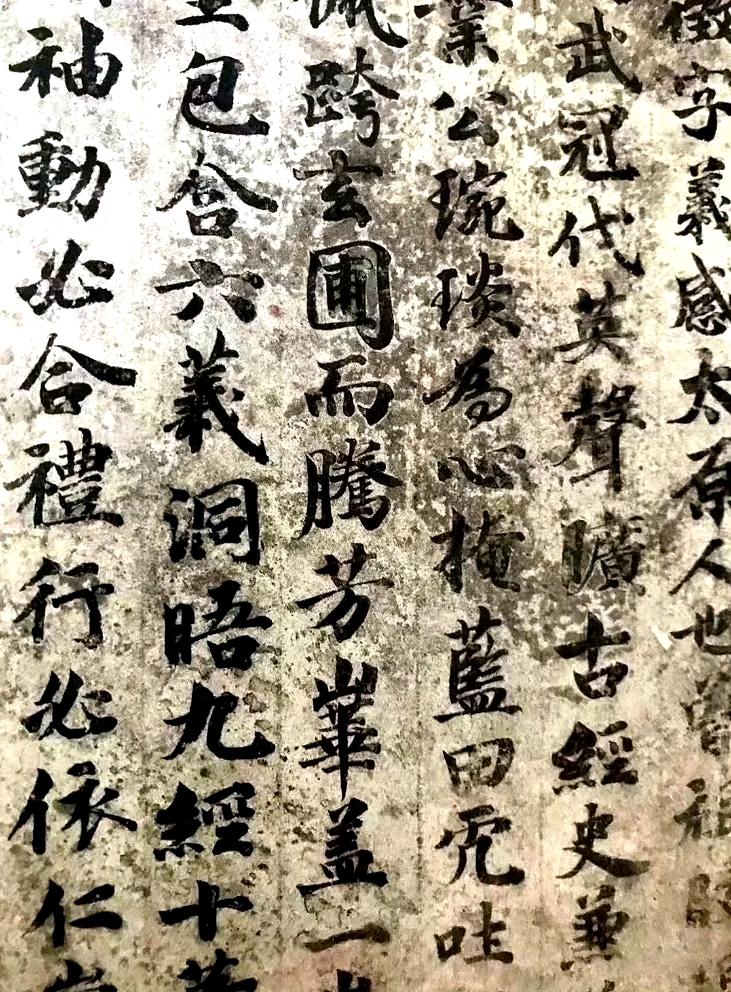 徵字義感太原人也曾祖
武冠代英聲曠古經史兼
業公琬琰為心掩藍田
跨玄圃而騰芳崋蓋一
包含六義洞晤九經十
袖動必合禮行必依仁